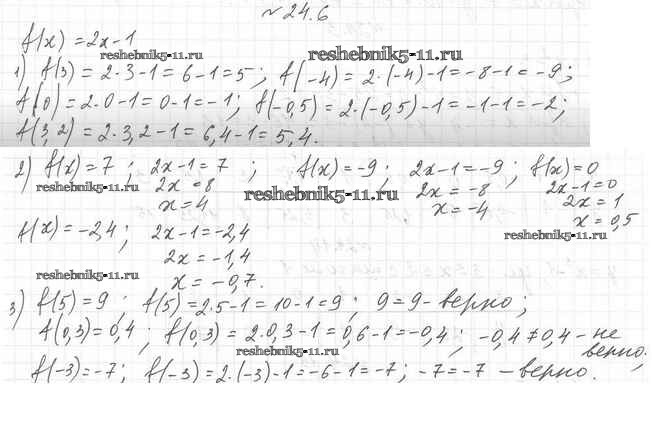 № 24.6
f(x) = 2x-1
reshebnik5-11.ru
reshebnik5-11.ru
1) f(3) = 2·3-1 = 6-1 = 5; f(-4) = 2·(-4)-1 = -8-1 = -9;
f(0) = 2·0-1 = 0-1 = -1; f(-0,5) = 2·(-0,5)-1 = -1-1 = -2;
f(3,2) = 2·3,2-1 = 6,4-1 = 5,4.
2) f(x) = 7; 2x-1 = 7; f(x) = -9; 2x-1 = -9; f(x) = 0
reshebnik5-11.ru 2x = 8 reshebnik5-11.ru 2x = -8 2x-1 = 0
x = 4 x = -4 2x = 1
x = 0,5
f(x) = -2,4; 2x-1 = -2,4 reshebnik5-11.ru
2x = -1,4
reshebnik5-11.ru x = -0,7.
3) f(5) = 9; f(5) = 2·5-1 = 10-1 = 9; 9 = 9 - верно;
f(0,3) = 0,4; f(0,3) = 2·0,3-1 = 0,6-1 = -0,4; -0,4 ≠ 0,4 - не
reshebnik5-11.ru верно;
f(-3) = -7; f(-3) = 2·(-3)-1 = -6-1 = -7; -7 = -7 - верно.